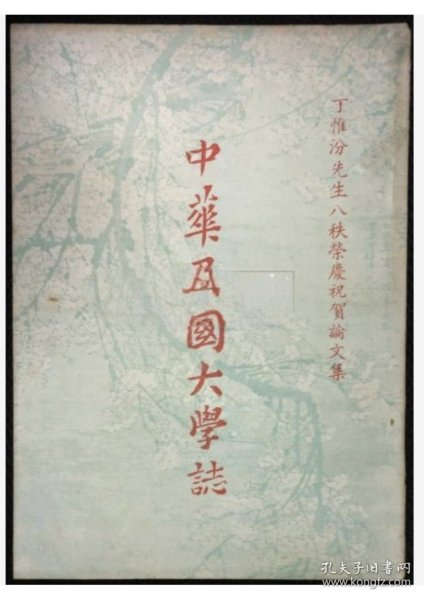 丁惟汾先生八秩榮慶祝賀論文集
中華民國大學誌
孔夫子旧书网
www.kongfz.com